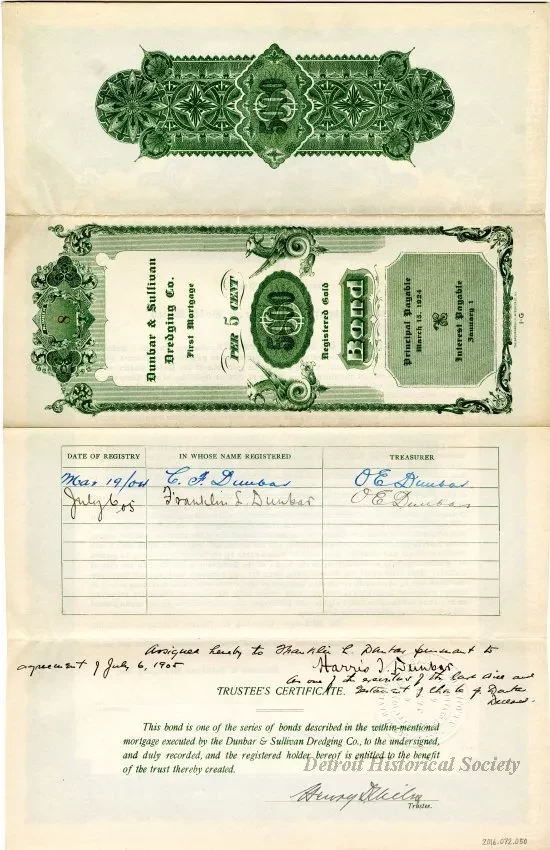 5000
8
Dunbar & Sullivan
Dredging Co.
First Mortgage
PER 5 CENT
5000
Registered Gold
Bond
Principal Payable
March 15, 1924
Interest Payable
January 1
DATE OF REGISTRY IN WHOSE NAME REGISTERED TREASURER
Mar 19/04 C. F. Dunbar O E Dunbar
July 6 05 Franklin L. Dunbar O E Dunbar
Assigned hereby to Franklin L. Dunbar pursuant to
agreement of July 6, 1905
Harris T. Dunbar
As one of the executors of the last will and
testament of Dunbar
Deceased.
TRUSTEE'S CERTIFICATE.
This bond is one of the series of bonds described in the within-mentioned
mortgage executed by the Dunbar & Sullivan Dredging Co., to the undersigned,
and duly recorded, and the registered holder hereof is entitled to the benefit
of the trust thereby created.
Detroit Historical Society
Henry
Trustee.
2016.072.050